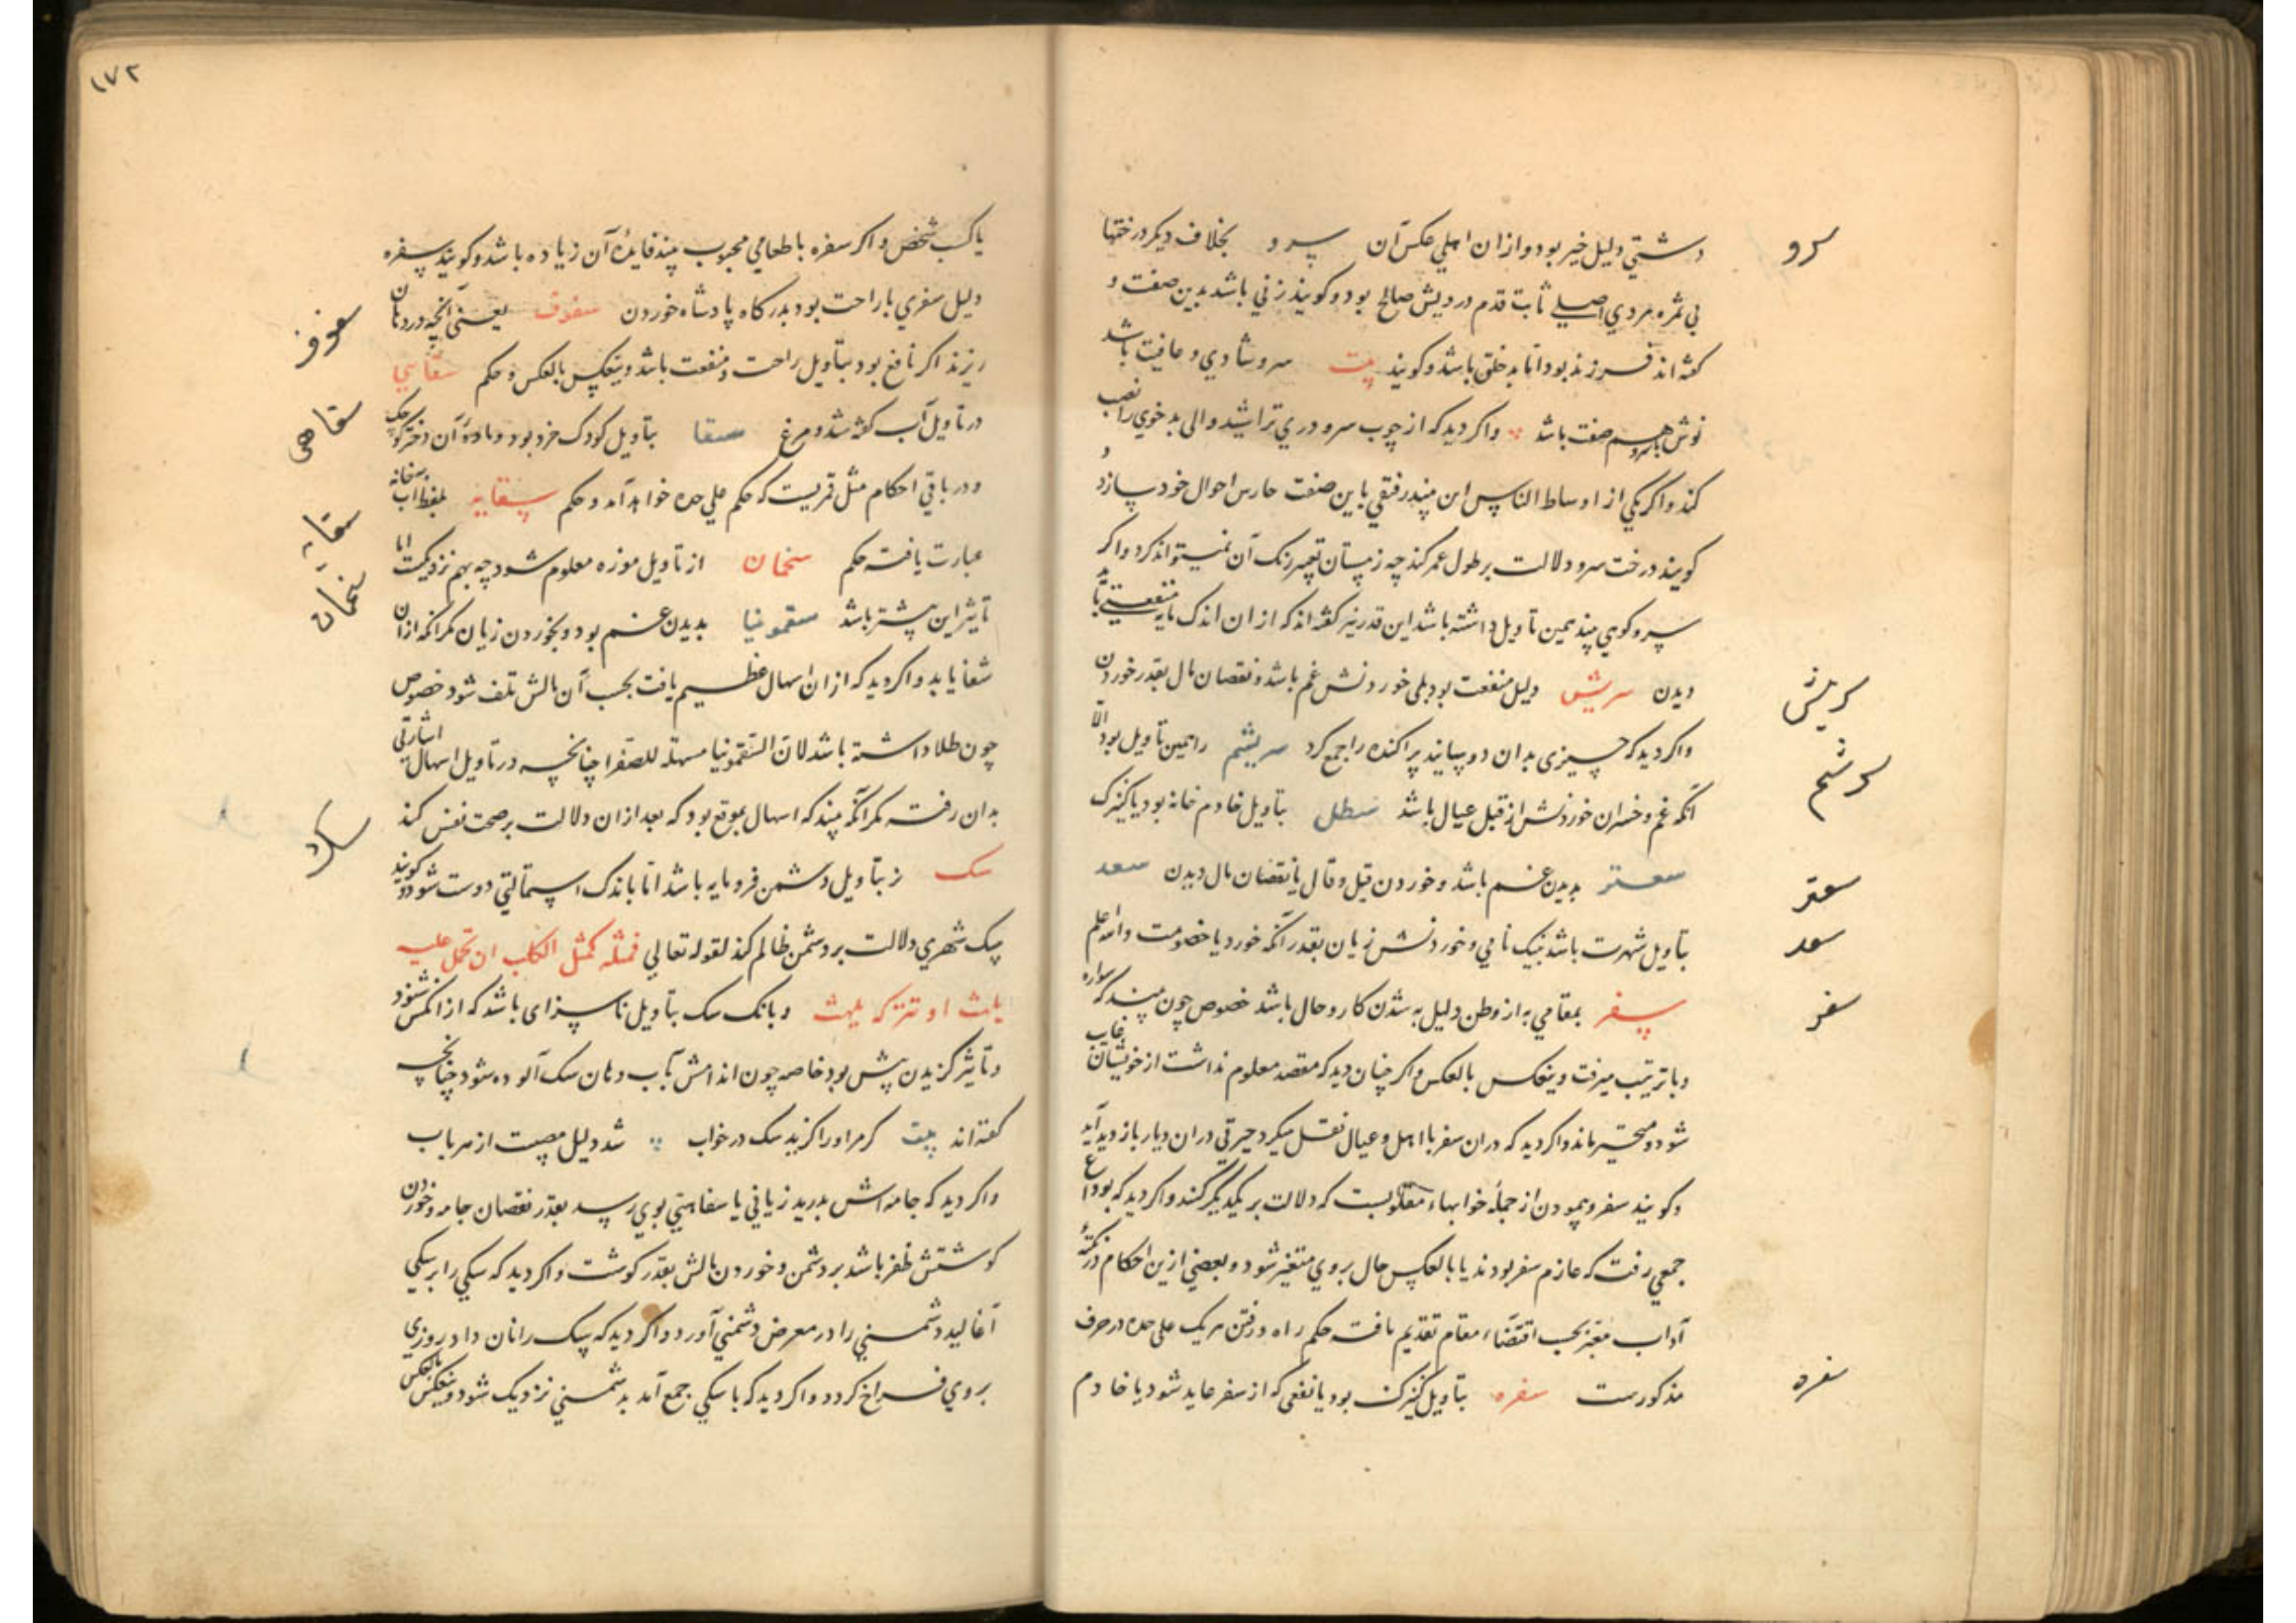 سرو
دشتی دلیل خیر بود و ازان اهلی عکس آن سرو بخلاف دیکر درختها
بی ثمره مردی اصیل ثابت قدم درویش صالح بود و کویند زنی باشد بدین صفت و
کفته اند فرزند بود اما بد خلق باشد و کویند بیت سرو شادی و عافیت باشد
نوش با سرو هم صفت باشد واکر دید که از چوب سرو دری تراشید والی بدخوی را نصب
کند واکر یکی از اوساط الناس این بیند رفیقی باین صفت حارس احوال خود سازد و
کویند درخت سرو دلالت بر طول عمر کند چه زمستان تغییر رنک آن نمیتواند کرد واکر
سرو کوهی بیند همین تاویل داشته باشد این قدر نیز کفته اند که ازان اندک مایه منفعتی یابد
سریش
دیدن سریش دلیل منفعت بود بلی خوردنش غم باشد و نقصان مال بقدر خوردن
واکر دید که چیزی بدان دوسانید پراکنده را جمع کرد سریشم را همین تاویل بود الا
سریشم
آنکه غم و خسران خوردنش از قبل عیال باشد سطل بتاویل خادم خانه بود یا کنیزک
سعتر
سعتر بدیدن غم باشد و خوردن قیل و قال یا نقصان مال دیدن سعد
سعد
بتاویل شهرت باشد بنیک نامی و خوردنش زیان بقدر آنکه خورد یا خصومت والله اعلم
سفر
سفر بمقامی به از وطن دلیل به شدن کار و حال باشد خصوص چون بیند که سواره
و با ترتیب میرفت و ینعکس بالعکس واکر چنان دید که مقصد معلوم نداشت از خویشان غایب
شود و متحیر ماند واکر دید که دران سفر با اهل و عیال نقل میکرد حیرتی دران دیار باز دید آید
و کویند سفر و پیمودن از جمله خوابهاء مقلوبست که دلالت بر یکدیکر کنند واکر دید که بوداع
جمعی رفت که عازم سفر بودند یا بالعکس حال بروی متغیر شود و بعضی ازین احکام در نکته
آداب معبر بحسب اقتضاء مقام تقدیم یافت حکم راه و رفتن هریک علی حده در حرف
سفره
مذکورست سفره بتاویل کنیزک بود یا نفعی که از سفر عاید شود یا خادم
۱۷۲
یا کسب شخص واکر سفره با طعامی محبوب بیند فایده آن زیاده باشد و کویند سفره
دلیل سفری با راحت بود بدرکاه پادشاه خوردن سفوف یعنی آنچه در دهان
سفوف
ریزند اکر نافع بود بتاویل راحت و منفعت باشد وینعکس بالعکس و حکم سقاهی
سقاهی
در تاویل آب کفته شد و مرغ سقا بتاویل کودک خرد بود و ماده آن دخترکوچک
و در باقی احکام مثل قمریست که حکم علی حده خواهد آمد و حکم سقایه بلفظ آب‌خانه
سقایه
عبارت یافت حکم سخمان از تاویل موزه معلوم شود چه بهم نزدیکست اما
سخمان
تاثیر این بیشتر باشد سقمونیا بدیدن غم بود و بخوردن زیان مکر آنکه ازان
شفا یابد واکر دید که ازان اسهال عظیم یافت بحسب آن مالش تلف شود خصوص
چون طلا داشته باشد لان السقمونیا مسهلة للصفرا چنانچه در تاویل اسهال اشارتی
بدان رفت مکر آنکه بیند که اسهال بموقع بود که بعد ازان دلالت بر صحت نفس کند
سک
سک نر بتاویل دشمن فرومایه باشد اما باندک استمالتی دوست شود و کویند
سک شهری دلالت بر دشمن ظالم کند لقوله تعالی فمثله کمثل الکلب ان تحمل علیه
یلهث او تترکه یلهث و بانک سک بتاویل ناسزای باشد که ازانکس شنود
و تاثیر کزیدن بیش بود خاصه چون اندامش بآب دهان سک آلوده شود چنانچه
کفته اند بیت کر مر او را کزید سک در خواب شد دلیل مصیبت از هر باب
واکر دید که جامه اش بدرید زیانی یا سفاهتی بوی رسد بقدر نقصان جامه و خوردن
کوشتش ظفر باشد بر دشمن و خوردن مالش بقدر کوشت واکر دید که سکی را بر سکی
آغالید دشمنی را در معرض دشمنی آورد واکر دید که سک را نان داد روزی
بروی فراخ کردد واکر دید که با سکی جمع آمد بدشمنی نزدیک شود وینعکس بالعکس